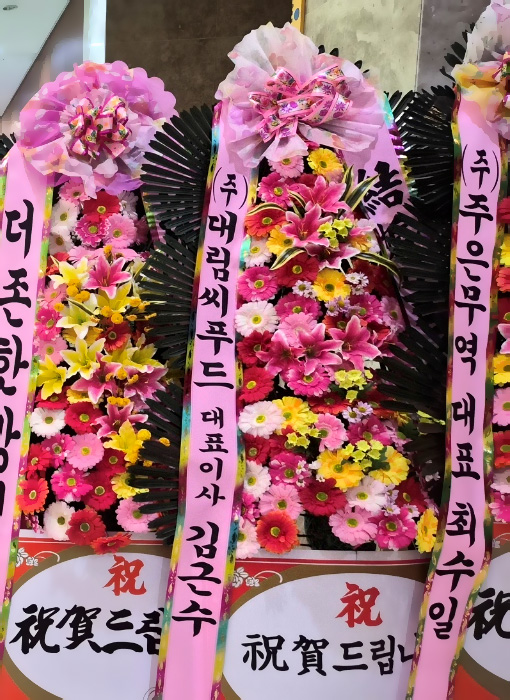 더존한방
(주)대림씨푸드 대표이사 김근수
結
(주)주은무역 대표 최수일
祝
祝賀드립
祝
祝賀드립니
祝